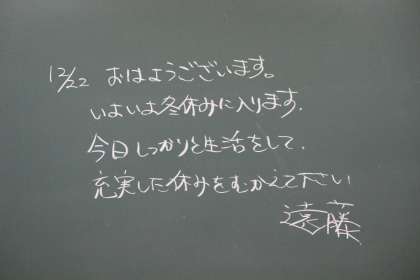 12/22 おはようございます。
いよいよ冬休みに入ります.
今日しっかりと生活をして.
充実した休みをむかえて下さい
遠藤